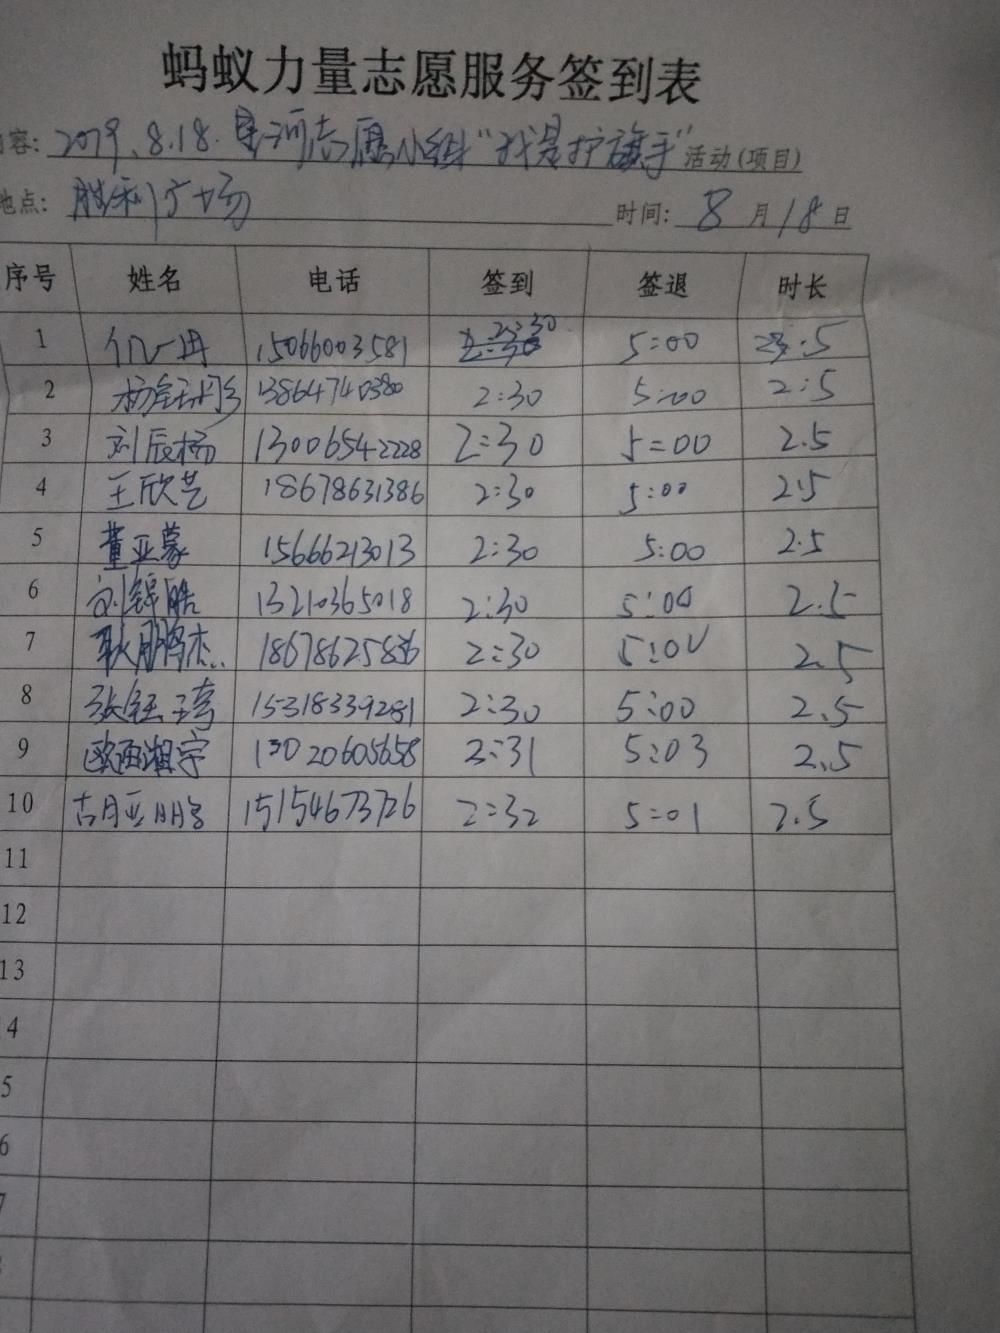 蚂蚁力量志愿服务签到表
容: 2019.8.18.星河志愿小组"我是护旗手"活动(项目)
地点: 胜利广场 时间: 8月18日
序号 姓名 电话 签到 签退 时长
1 15066003581 2:30 5:00 .5
2 杨钰 13864740380 2:30 5:00 2:5
3 刘辰杨 13006542228 2:30 5:00 2.5
4 王欣艺 18678631386 2:30 5:00 2.5
5 董亚蒙 15666213013 2:30 5:00 2.5
6 刘锦皓 13210365018 2:30 5:00 2.5
7 耿鹏杰 186786258 2:30 5:00 2.5
8 张钰琦 15318339281 2:30 5:00 2.5
9 欧西湘宇 13020605658 2:31 5:03 2.5
10 胡亚朋 15154673726 2:32 5:01 2.5
11
12
13
4
5
6
7